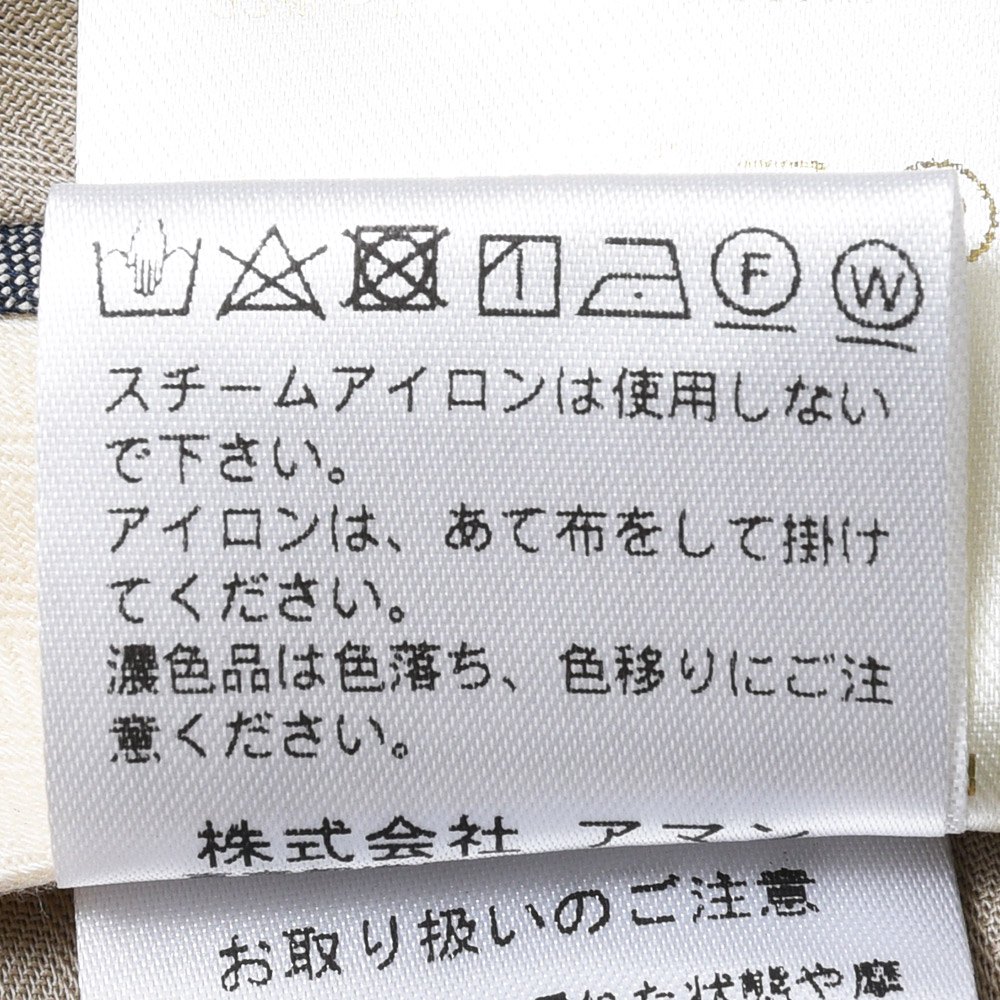 F W
スチームアイロンは使用しない
で下さい。
アイロンは、あて布をして掛け
てください。
濃色品は色落ち、色移りにご注
意ください。
株式会社 アマン
お取り扱いのご注意
た状態や摩